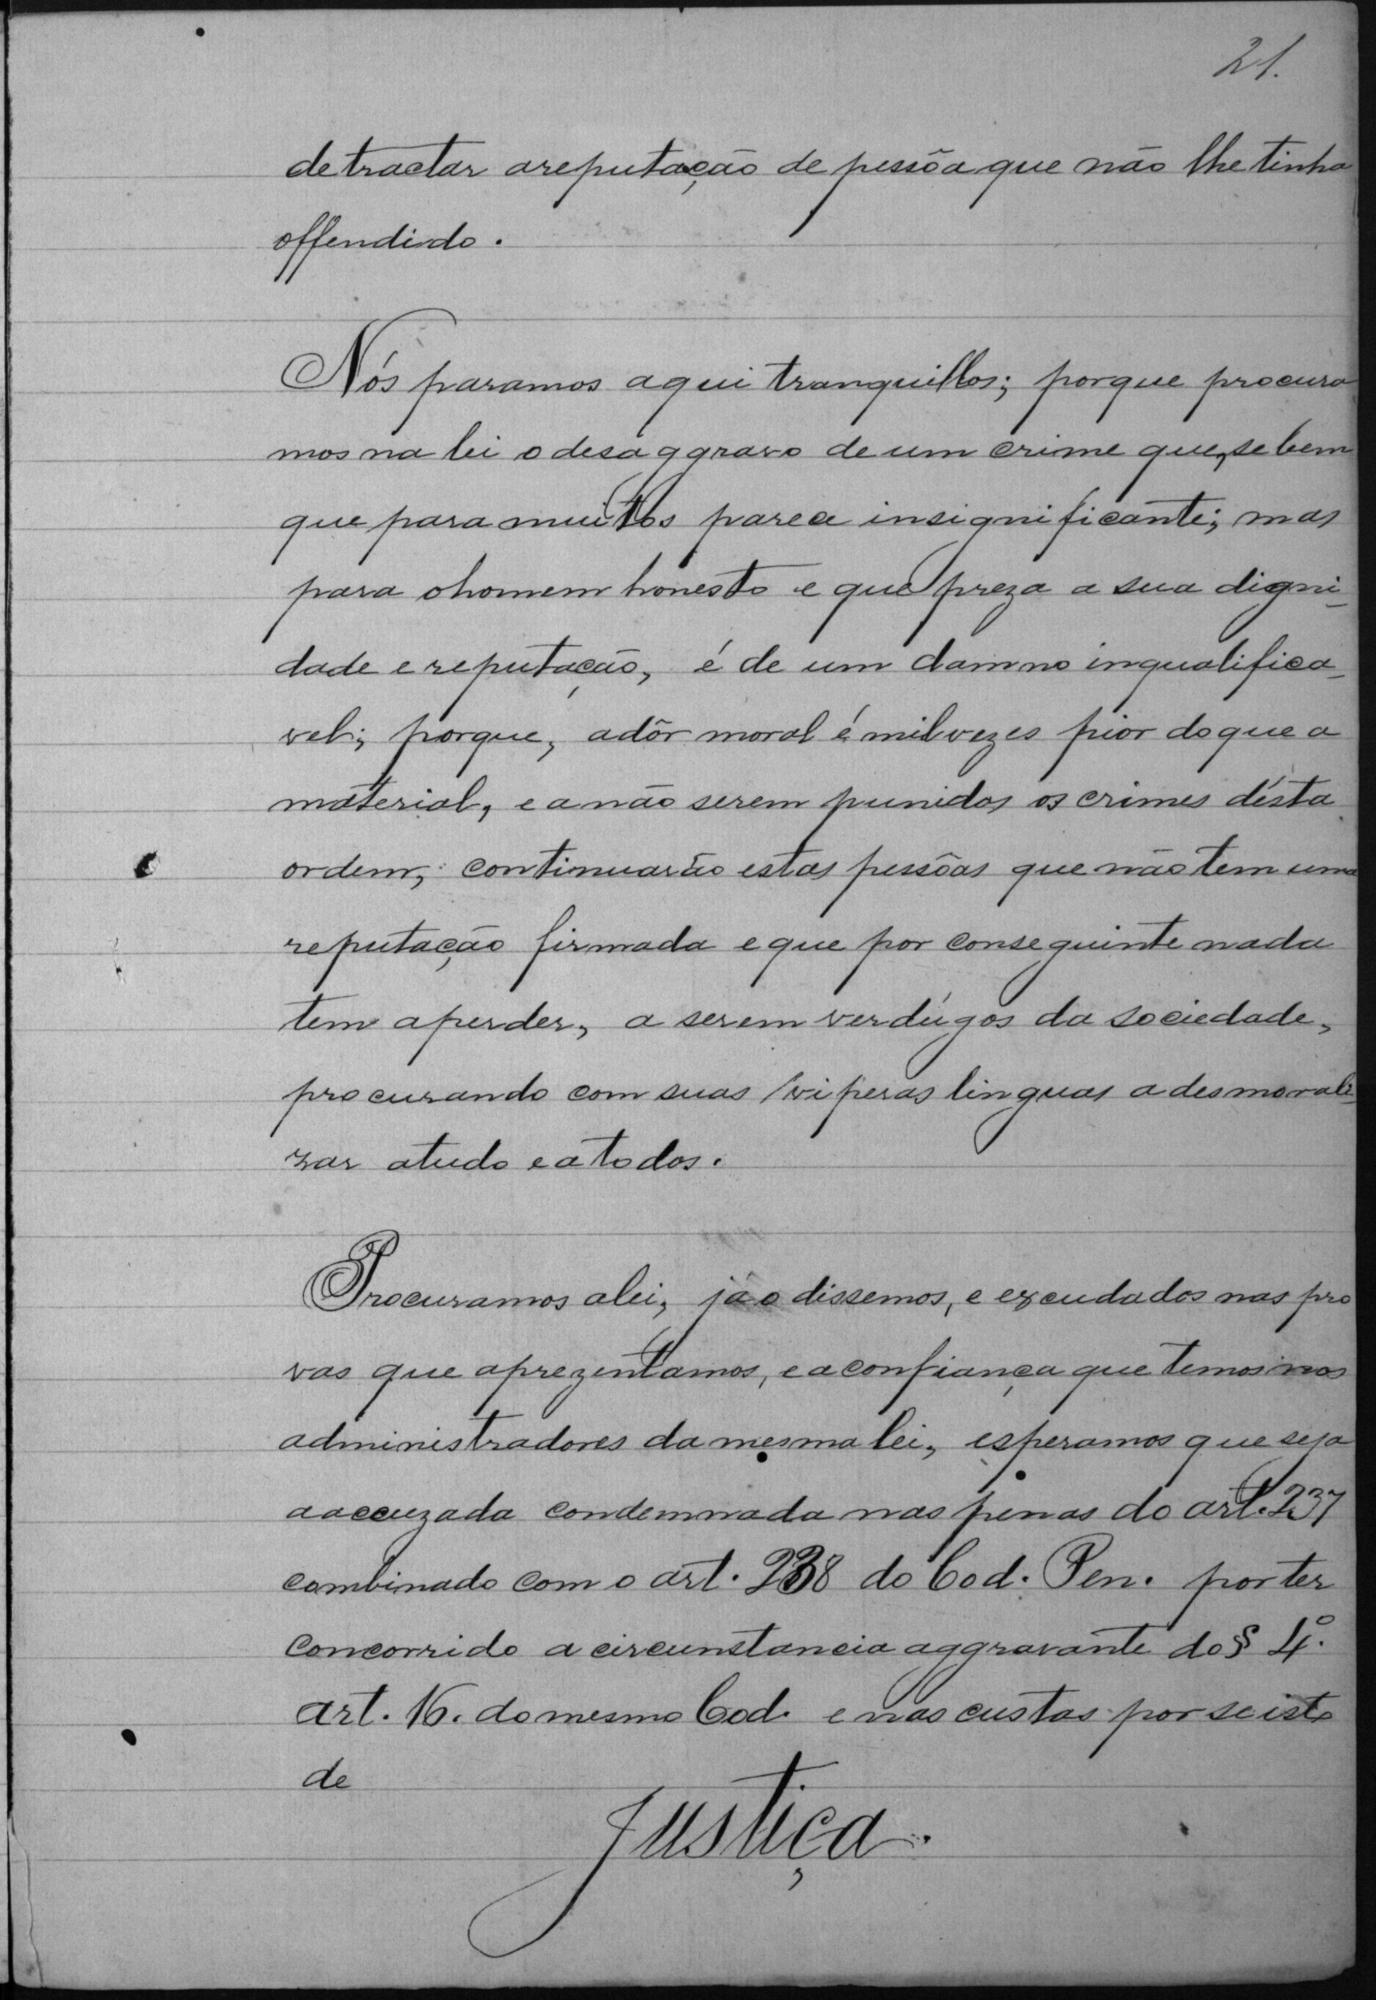 21.
detractar a reputação de pessôa que não lhe tinha
offendido.
Nós paramos aqui tranquillos; porque procura
mos na lei o desaggravo de um crime que, se bem
que para muitos parece insignificante; mas
para o homem honesto e que preza a sua digni_
dade e reputação, é de um damno inqualifica_
vel; porque, a dôr moral é mil vezes pior do que a
material, e a não serem punidos os crimes désta
ordem, continuarão estas pessôas que não tem uma
reputação firmada e que por conseguinte nada
tem a perder, a serem verdúgos da sociedade,
procurando com suas viperas linguas a desmorali_
zar a tudo e a todos.
Procuramos a lei, já o dissemos, e escudados nas pro
vas que aprezentamos, e a confiança que temos nos
administradores da mesma lei, esperamos que seja
a accuzada condemnada nas penas do art. 237
combinado com o art. 238 do Cod. Pen. por ter
concorrido a circunstancia aggravante do § 4º.
art. 16. do mesmo Cod. e nas custas por se isto
de
Justiça.